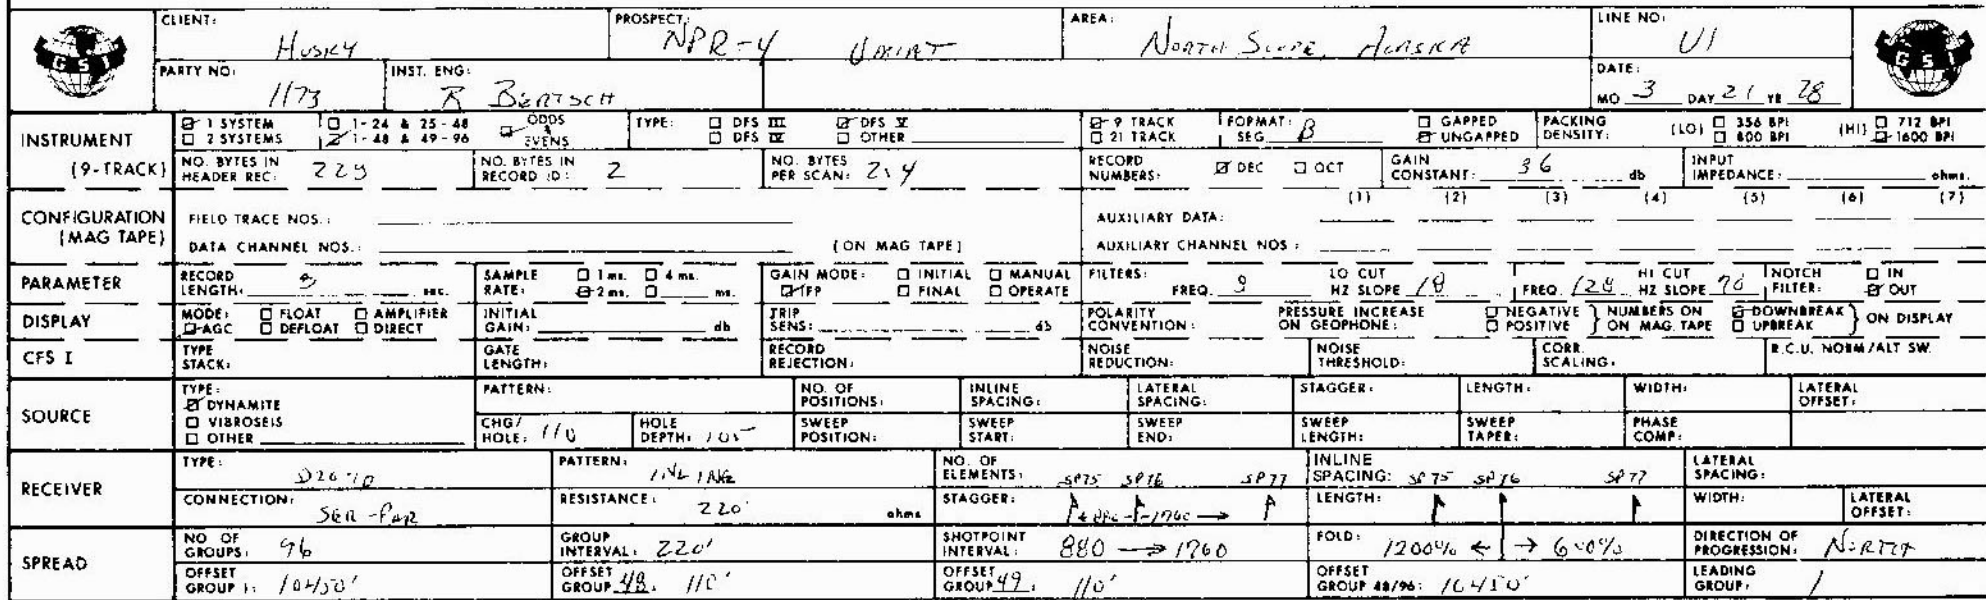 CLIENT: Husky PROSPECT: NPR-4 UMIAT AREA: North Slope, Alaska LINE NO: U1
GSI
PARTY NO: 1173 INST. ENG: R BERTSCH DATE: MO 3 DAY 21 YR 78
GSI
INSTRUMENT (9-TRACK) 1 SYSTEM 2 SYSTEMS 1-24 & 25-48 1-48 & 49-96 ODDS & EVENS TYPE: DFS III DFS IV DFS V OTHER 9 TRACK 21 TRACK FORMAT: SEG B GAPPED UNGAPPED PACKING DENSITY: (LO) 356 BPI 800 BPI (HI) 712 BPI 1600 BPI
NO. BYTES IN HEADER REC: NO. BYTES IN RECORD ID: 2 NO. BYTES PER SCAN: RECORD NUMBERS: DEC OCT GAIN CONSTANT: 36 db INPUT IMPEDANCE: ohms.
CONFIGURATION (MAG TAPE) (1) (2) (3) (4) (5) (6) (7)
FIELD TRACE NOS.: AUXILIARY DATA:
DATA CHANNEL NOS.: (ON MAG TAPE) AUXILIARY CHANNEL NOS:
PARAMETER RECORD LENGTH: sec. SAMPLE RATE: 1 ms. 4 ms. 2 ms. ms. GAIN MODE: INITIAL MANUAL IFP FINAL OPERATE FILTERS: FREQ. 9 LO CUT HZ SLOPE 18 FREQ. 128 HI CUT HZ SLOPE 70 NOTCH FILTER: IN OUT
DISPLAY MODE: FLOAT AMPLIFIER AGC DEFLOAT DIRECT INITIAL GAIN: db TRIP SENS: db POLARITY CONVENTION: PRESSURE INCREASE ON GEOPHONE: NEGATIVE POSITIVE } NUMBERS ON ON MAG. TAPE DOWNBREAK UPBREAK } ON DISPLAY
CFS I TYPE STACK: GATE LENGTH: RECORD REJECTION: NOISE REDUCTION: NOISE THRESHOLD: CORR. SCALING: R.C.U. NORM/ALT SW.
SOURCE TYPE: DYNAMITE VIBROSEIS OTHER PATTERN: NO. OF POSITIONS: INLINE SPACING: LATERAL SPACING: STAGGER: LENGTH: WIDTH: LATERAL OFFSET:
CHG/HOLE: 110 HOLE DEPTH: 105 SWEEP POSITION: SWEEP START: SWEEP END: SWEEP LENGTH: SWEEP TAPER: PHASE COMP:
RECEIVER TYPE: PATTERN: INLINE NO. OF ELEMENTS: SP75 SP76 SP77 INLINE SPACING: SP75 SP76 SP77 LATERAL SPACING:
CONNECTION: SER-PAR RESISTANCE: 220 ohms STAGGER: 1760 → LENGTH: WIDTH: LATERAL OFFSET:
SPREAD NO. OF GROUPS: 96 GROUP INTERVAL: 220' SHOTPOINT INTERVAL: 880 → 1760 FOLD: 1200% ← → 600% DIRECTION OF PROGRESSION: NORTH
OFFSET GROUP 1: 10450' OFFSET GROUP 48: 110' OFFSET GROUP 49: 110' OFFSET GROUP 48/96: 10450' LEADING GROUP: 1